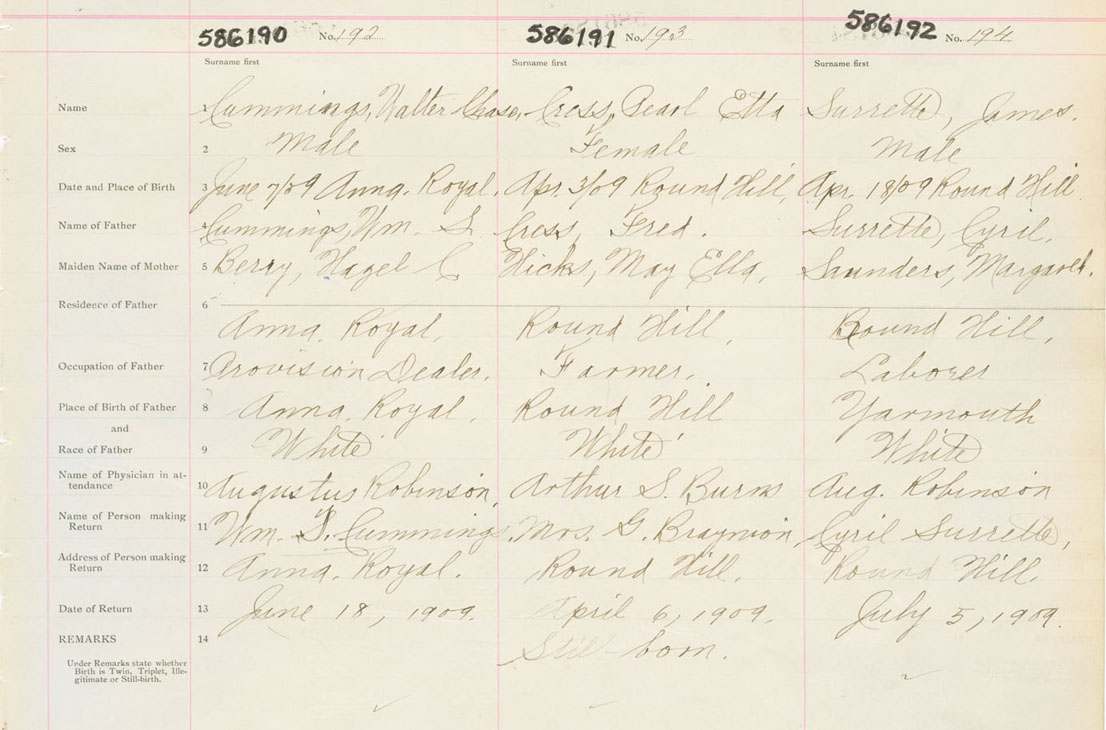 586190 No. 192 586191 No. 193 586192 No. 194
Surname first Surname first Surname first
Name 1 Cummings, Walter Chase, Cress, Pearl Etta Surrette, James.
Sex 2 Male Female Male
Date and Place of Birth 3 June 7/09 Anna. Royal. Apr. 3/09 Round Hill, Apr. 18/09 Round Hill
Name of Father 4 Cummings, Wm. S. Cress, Fred. Surrette, Cyril.
Maiden Name of Mother 5 Berry, Hazel C Hicks, May Ella, Saunders, Margaret.
Residence of Father 6
Anna. Royal, Round Hill, Round Hill,
Occupation of Father 7 Provision Dealer. Farmer, Laborer
Place of Birth of Father 8 Anna. Royal, Round Hill Yarmouth
and
Race of Father 9 White White White
Name of Physician in at-
tendance 10 Augustus Robinson, Arthur S. Burns Aug. Robinson
Name of Person making
Return 11 Wm. S. Cummings. Mrs. G. Braynion, Cyril Surrette,
Address of Person making
Return 12 Anna. Royal. Round Hill. Round Hill.
Date of Return 13 June 18, 1909. April 6, 1909. July 5, 1909.
REMARKS 14 Still-born.
Under Remarks state whether
Birth is Twin, Triplet, Ille-
gitimate or Still-birth.